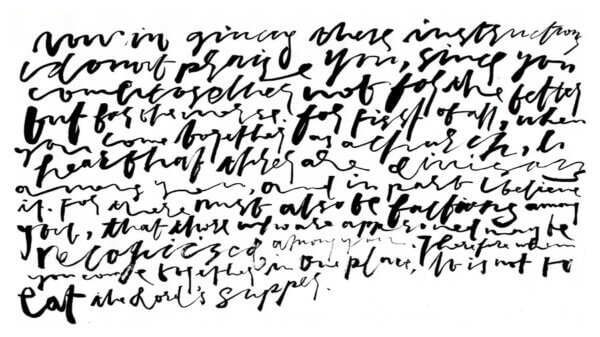 now in giving these instructions
I do not praise you, since you
come together not for the better
but for the worse. for first of all, when
you come together as a church, I
hear that there are divisions
among you, and in part I believe
it. For there must also be factions among
you, that those who are approved may be
recognized among you. Therefore when
you come together in one place, it is not to
eat the Lord's Supper.